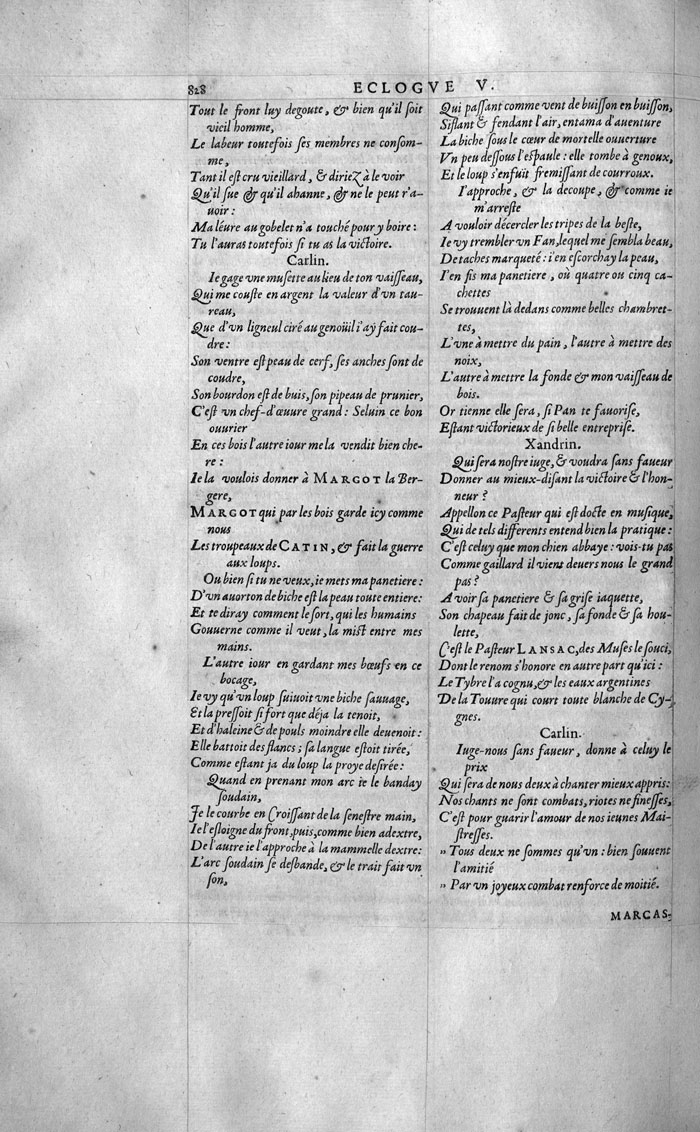 828
ECLOGVE V.
Tout le front luy degoute, & bien qu'il soit
vieil homme,
Le labeur toutefois ses membres ne consom-
me,
Tant il est cru vieillard, & diriez à le voir
Qu'il sue & qu'il ahanne, & ne le peut r'a-
uoir:
Ma léure au gobelet n'a touché pour y boire:
Tu l'auras toutefois si tu as la victoire.
Carlin.
Ie gage vne musette au lieu de ton vaisseau,
Qui me couste en argent la valeur d'vn tau-
reau,
Que d'vn ligneul ciré au genoüil i'ay fait cou-
dre:
Son ventre est peau de cerf, ses anches sont de
coudre,
Son bourdon est de buis, son pipeau de prunier,
C'est vn chef-d'œuure grand: Seluin ce bon
ouurier
En ces bois l'autre iour me la vendit bien che-
re:
Ie la voulois donner à MARGOT la Ber-
gere,
MARGOT qui par les bois garde icy comme
nous
Les troupeaux de CATIN, & fait la guerre
aux loups.
Ou bien si tu ne veux, ie mets ma panetiere:
D'vn auorton de biche est la peau toute entiere:
Et te diray comment le sort, qui les humains
Gouuerne comme il veut, la mist entre mes
mains.
L'autre iour en gardant mes bœufs en ce
bocage,
Ie vy qu'vn loup suiuoit vne biche sauuage,
Et la pressoit si fort que déja la tenoit,
Et d'haleine & de pouls moindre elle deuenoit:
Elle battoit des flancs; sa langue estoit tirée,
Comme estant ja du loup la proye desirée:
Quand en prenant mon arc ie le banday
soudain,
Je le courbe en Croissant de la senestre main,
Ie l'esloigne du front, puis, comme bien adextre,
De l'autre ie l'approche à la mammelle dextre:
L'arc soudain se desbande, & le trait fait vn
son,
Qui passant comme vent de buisson en buisson,
Siflant & fendant l'air, entama d'auenture
La biche sous le cœur de mortelle ouuerture
Vn peu dessous l'espaule: elle tombe à genoux,
Et le loup s'enfuit fremissant de courroux.
I'approche, & la decoupe, & comme ie
m'arreste
A vouloir décercler les tripes de la beste,
Ie vy trembler vn Fan, lequel me sembla beau,
De taches marqueté: i'en escorchay la peau,
I'en fis ma panetiere, où quatre ou cinq ca-
chettes
Se trouuent là dedans comme belles chambret-
tes,
L'vne à mettre du pain, l'autre à mettre des
noix,
L'autre à mettre la fonde & mon vaisseau de
bois.
Or tienne elle sera, si Pan te fauorise,
Estant victorieux de si belle entreprise.
Xandrin.
Qui sera nostre iuge, & voudra sans faueur
Donner au mieux-disant la victoire & l'hon-
neur?
Appellon ce Pasteur qui est docte en musique,
Qui de tels differents entend bien la pratique:
C'est celuy que mon chien abbaye: vois-tu pas
Comme gaillard il vient deuers nous le grand
pas?
A voir sa panetiere & sa grise iaquette,
Son chapeau fait de jonc, sa fonde & sa hou-
lette,
C'est le Pasteur LANSAC, des Muses le souci,
Dont le renom s'honore en autre part qu'ici:
Le Tybre l'a cognu, & les eaux argentines
De la Touure qui court toute blanche de Cy-
gnes.
Carlin.
Iuge-nous sans faueur, donne à celuy le
prix
Qui sera de nous deux à chanter mieux appris:
Nos chants ne sont combats, riotes ne finesses,
C'est pour guarir l'amour de nos ieunes Mai-
stresses.
" Tous deux ne sommes qu'vn: bien souuent
l'amitié
" Par vn joyeux combat renforce de moitié.
MARCAS-